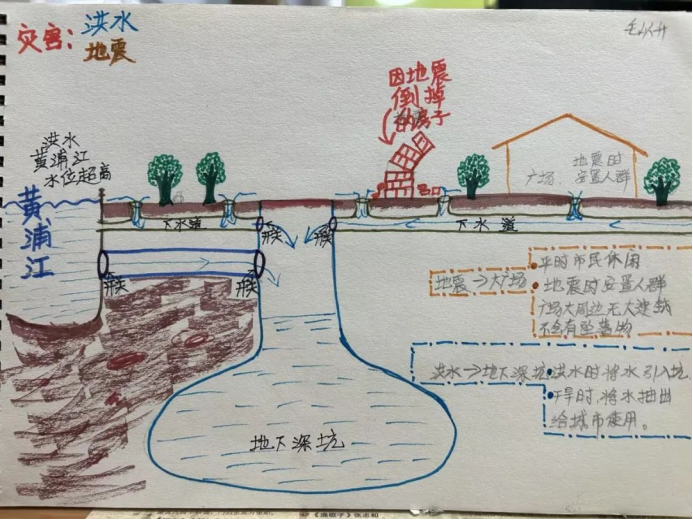 灾害：洪水
地震
洪水
黄浦江
水位超高
黄浦江
因地震
倒掉
的房子
地震时
广场、安置人群
下水道
下水道
开关
开关
开关
开关
地震→大广场
平时市民休闲
地震时安置人群
广场大周边无大建筑
不会有坠落物
洪水→地下深坑
洪水时将水引入坑
干旱时，将水抽出
给城市使用。
地下深坑